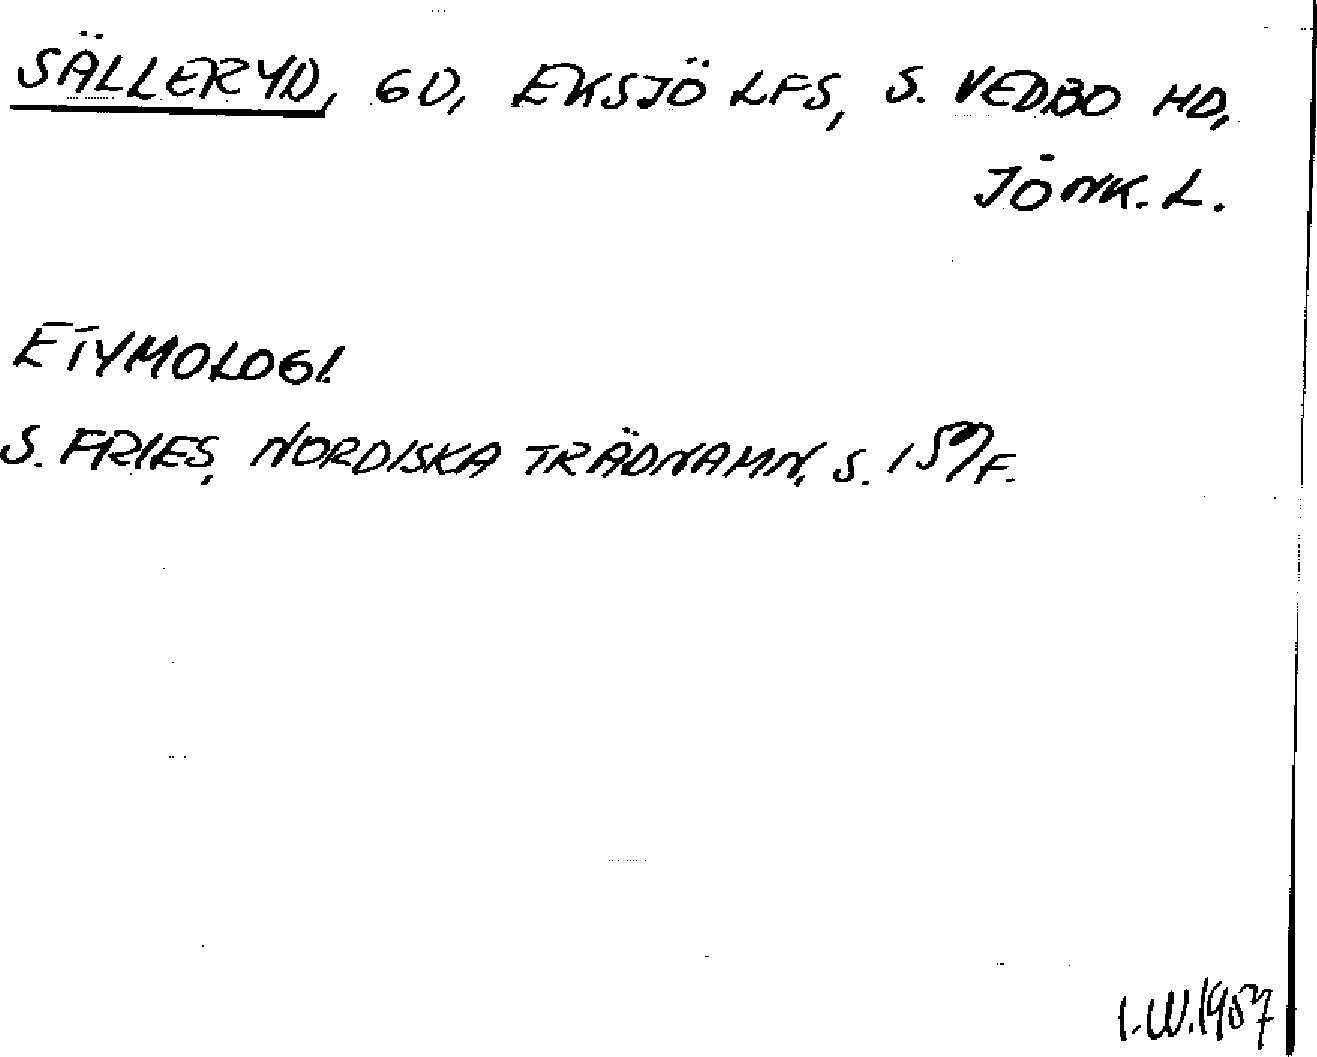 SÄLLERYD, GD, EKSJÖ LFS, S. VEDBO HD,
JÖNK. L.
ETYMOLOGI.
S. FRIES, NORDISKA TRÄDNAMN, S. 157 F.
I.W.1957